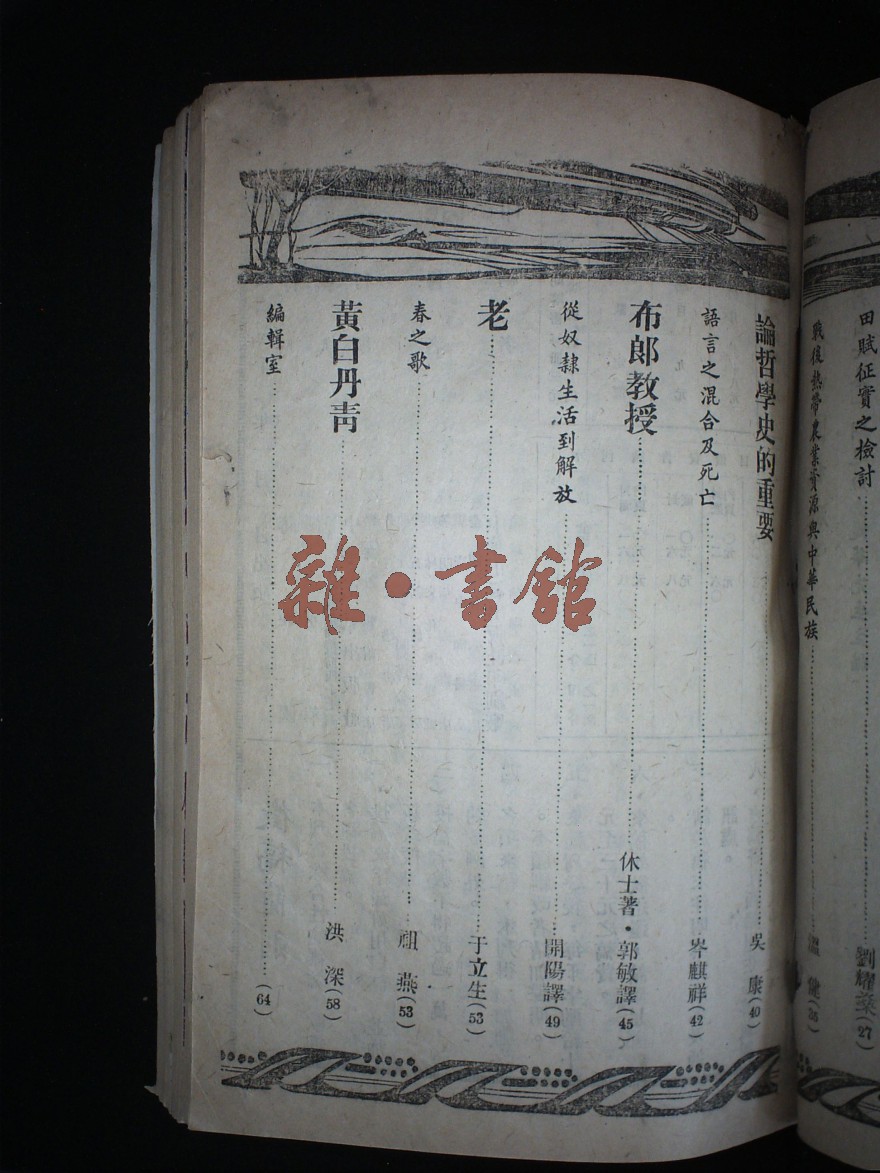 田賦征實之檢討 劉耀燊(27)
戰後熱帶農業資源與中華民族 溫健(35)
論哲學史的重要 吳康(40)
語言之混合及死亡 岑麒祥(42)
布郎教授 休士著・郭敏譯(45)
從奴隸生活到解放 開陽譯(49)
老 于立生(53)
春之歌 燕(53)
黃白丹靑 洪深(58)
編輯室 (64)
雜・書館